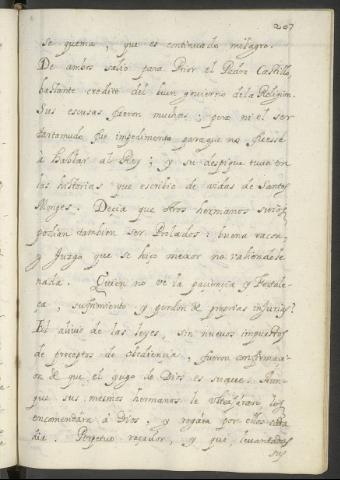 207
se quema, que es continuado milagro.
De ambos salio para Prior el Padre Castillo,
bastante credito del buen govierno de la Religion.
Sus escusas fueron muchas; pero ni el ser
tartamudo fue impedimento paraque no fuesse
à hablar al Rey; y su despique tuvo en
las historias que escribio de vidas de Santos
Monges. Decia que otros hermanos suios
podian tambien ser Prelados: buena raçon,
y juzgo que se hiço mexor no valiendole
nada. Quien no ve la paciencia y Fortale-
ça, sufrimiento y perdon de proprias injurias?
El alivio de las leyes, sin nuevos impuestos
de preceptos de obediencia, fueron confirmaçi-
on de que el yugo de Dios es suave. Aun-
que sus mesmos hermanos le ultrajaran los
encomendara à Dios, y rogara por ellos cada
dia. Perpetuo raçador, y que, levantados
sus